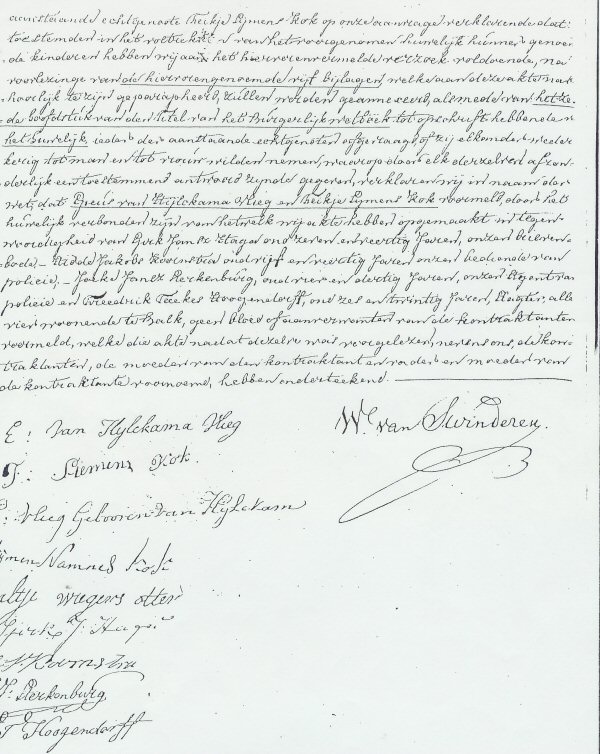 aanstaande echtgenoote Feikje Symens Kok op onze aanvrage verklarende dat
toestemden in het voltrekken van het voorgenomen huwelijk hunner genoem
de kinderen hebben wij aan het hiervorenvermelde verzoek voldoende, na
voorlezinge van de hiervorengenoemde vijf bijlagen, welke aan deze akte na be
hoorlyk te zijn geparapheerd, zullen worden geannexeerd, als mede van het ze
de hoofdstuk van den titel van het Burgerlyk wetboek tot opschrift hebbende van
het huwelijk ieder der aanstaande echtgenoten afgevraagd, of zij elkander weder
kerig tot man en tot vrouw wilden nemen, waarop door elk derzelver afzon
derlijk een toestemmend antwoord zynde gegeven, verklaren wij in naam der
wet, dat Epeus van Hylckama Vlieg en Feikje Symens Kok voormeld, door het
huwelijk verbonden zijn van hetwelk wij akte hebben opgemaakt in tegen
woordigheid van Gjerk Jans Haga oud zeven en veertig Jaren, onzen
bode. – Jakobs Koornstra oud vijf en veertig Jaren onzen bediende van
policie. – Janez Kerkenburg, oud vier en dertig Jaren, onzen Agent van
policie en Freedrick Foekes Hoogendorff, oud zes en twintig Jaren, Slagter, alle
vier wonende te Balk, geen bloed of aanverwanten van de kontraktanten
voormeld, welke die akte nadat dezelve was voorgelezen, nevens ons, de kon-
traktanten, de moeder van den kontraktant en vader en moeder van
de kontraktante voornoemd, hebben onderteekend.
E: van Hylckama Vlieg
W van Swinderen.
F: Siemens Kok.
Vlieg Gebooren van Hylckam
Namnes Kok
wiegers otter
Gjerk J: Haga
Koornstra
Kerkenburg
F Hoogendorff